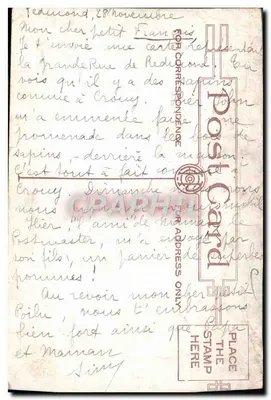 Redmond, 28 novembre
Mon cher petit François
Je t'envoie une carte représentant
la Grande Rue de Redmond. Tu
vois qu'il y a des sapins
comme à Crouy. Hier
on a emmenée faire une
promenade dans les bois de
sapins, derrière la maison.
C'est tout à fait comme à
Crouy. Dimanche
nous
Hier, l'ami de
Postmaster, m'a envoyé par
son fils, un panier de superbes
pommes!
Au revoir mon cher petit
Poilu, nous t'embrassons
bien fort ainsi que Papa
et Maman
Post Card
FOR CORRESPONDENCE
FOR ADDRESS ONLY
PLACE
THE
STAMP
HERE
CPAPHIL